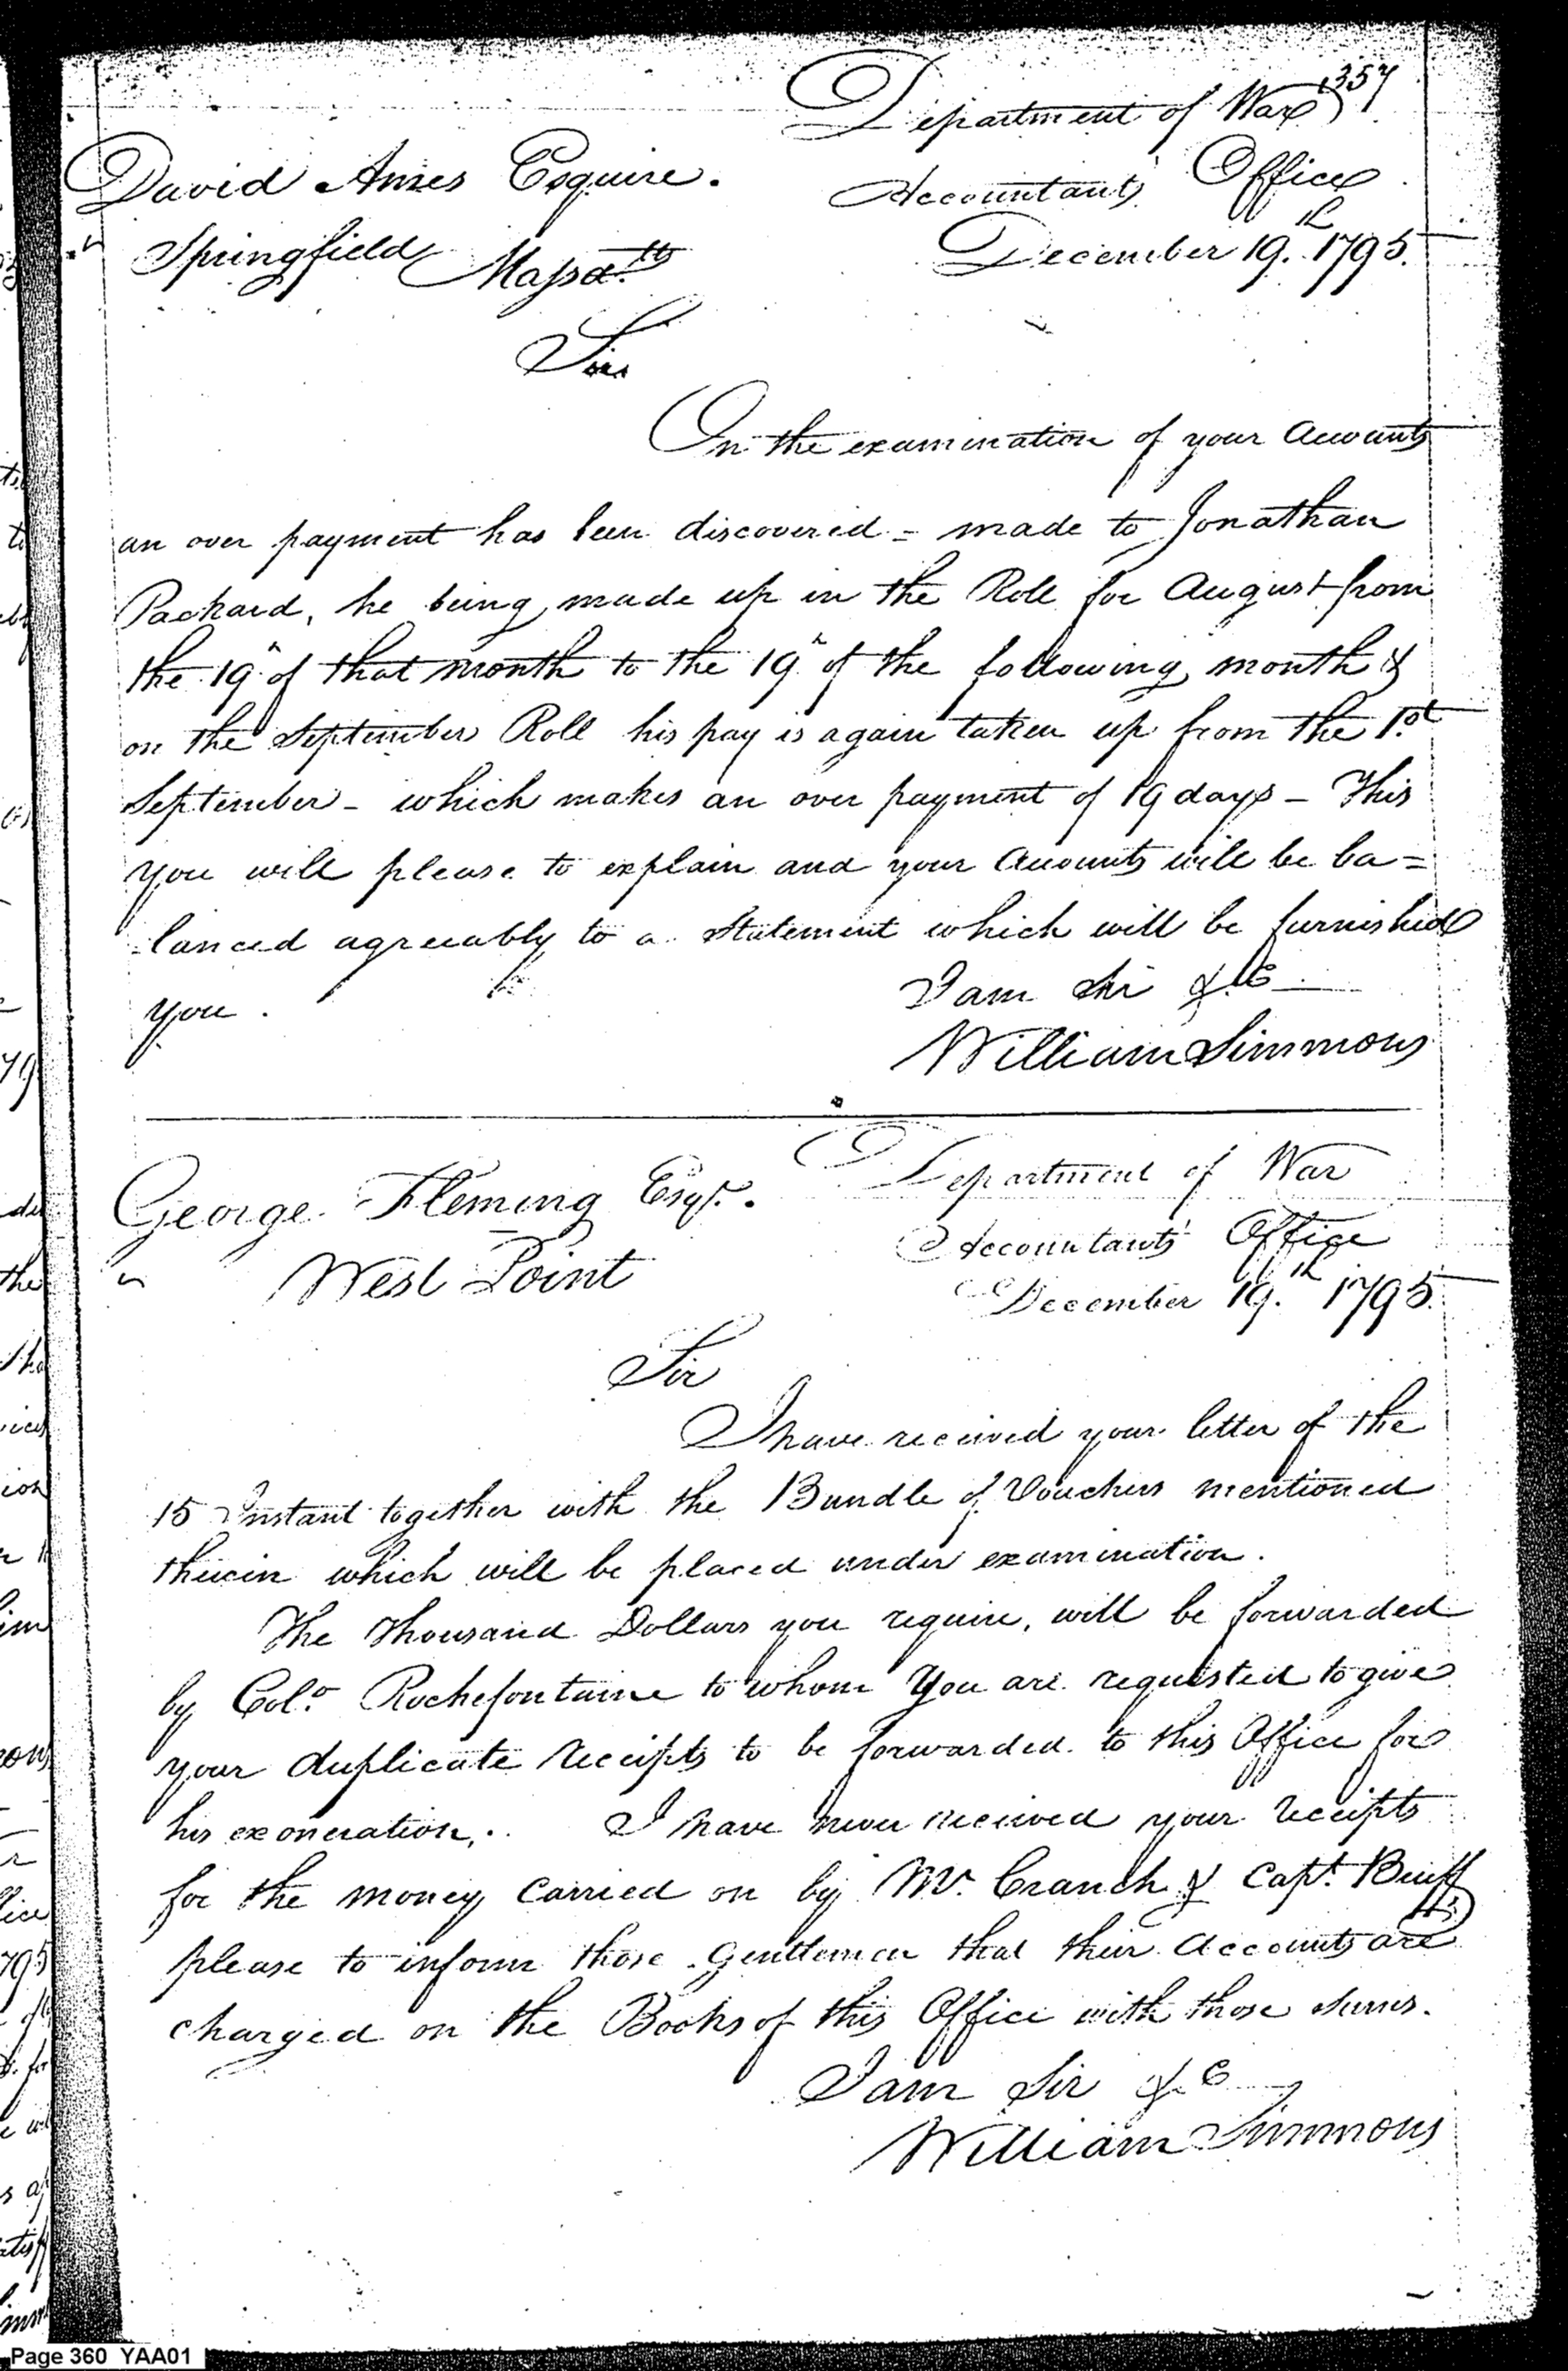 357
Department of War
David Ames Esquire.
Accountants Office
Springfield Massatts
December 19.th 1795.
Sir
On the examination of your Accounts
an over payment has been discovered - made to Jonathan
Packard, he being made up in the Roll for August from
the 19h of that month to the 19h of the following month &
on the September Roll his pay is again taken up from the 1.st
September - which makes an over payment of 19 days - This
you will please to explain and your Accounts will be ba=
lanced agreeably to a Statement which will be furnished
you.
I am Sir &c
William Simmons
George Fleming Esqr.
Department of War
West Point
Accountants' Office
December 19.th 1795.
Sir
I have received your letter of the
15 Instant together with the Bundle of Vouchers mentioned
therein which will be placed under examination.
The Thousand Dollars you require, will be forwarded
by Colo Rochefontaine to whom You are requested to give
your duplicate receipts to be forwarded to this Office for
his exoneration. I have never received your receipts
for the money carried on by Mr. Cranch & Capt. Bruff
please to inform those Gentlemen that their Accounts are
charged on the Books of this Office with those sums.
I am Sir &c
William Simmons
Page 360 YAA01